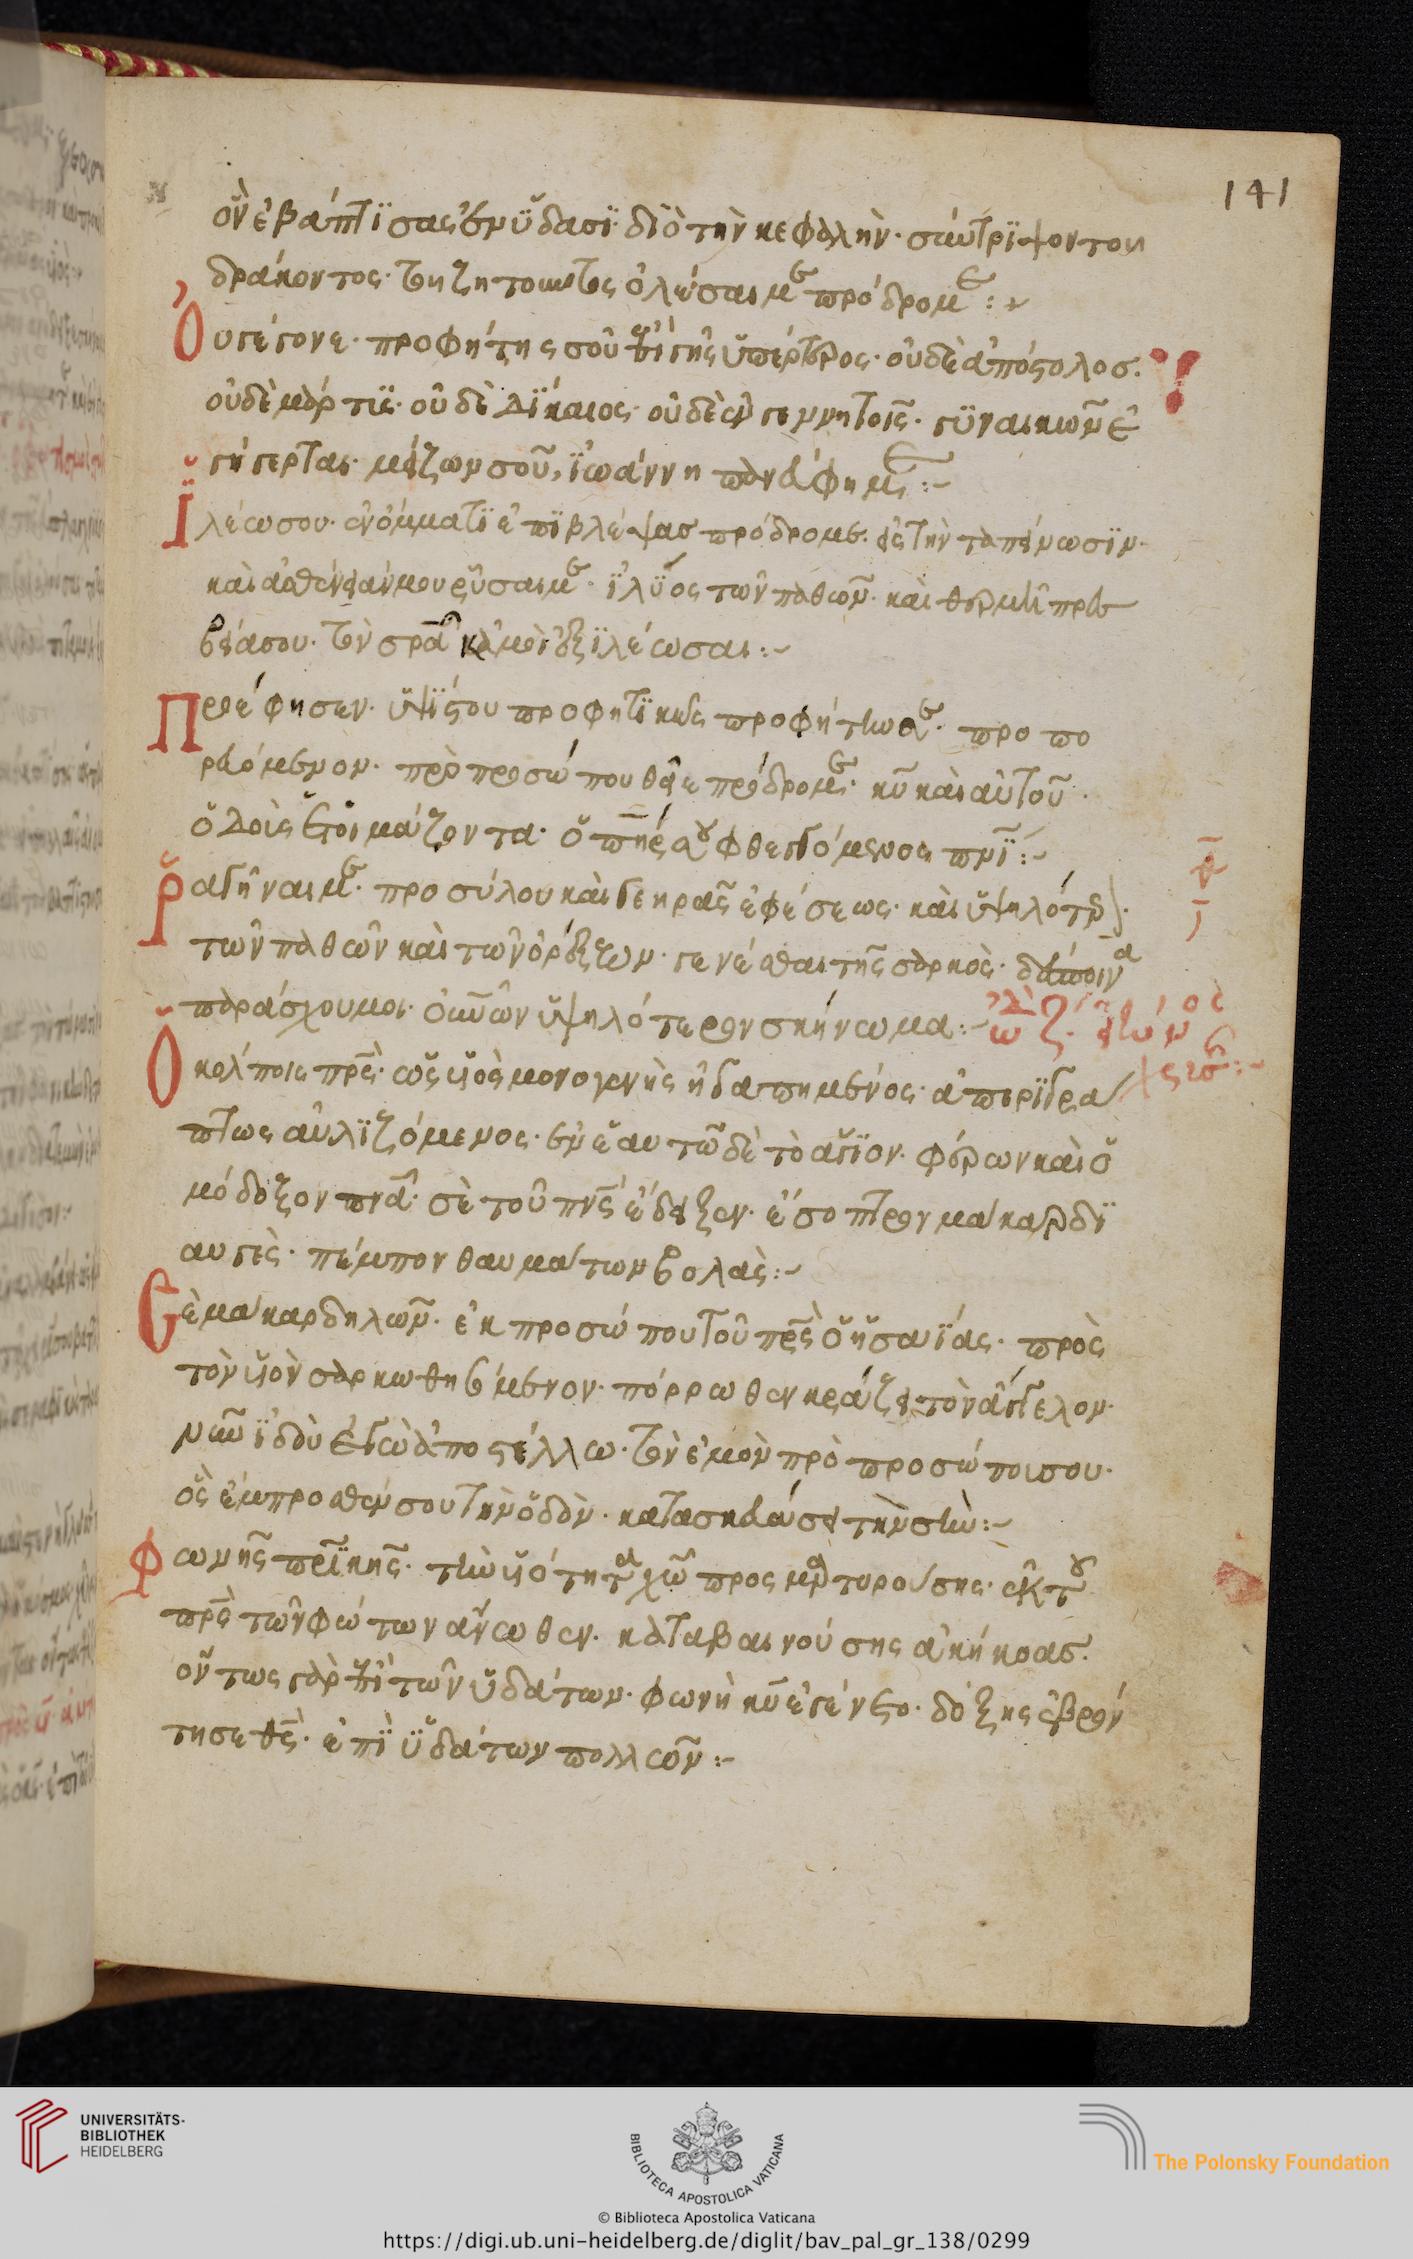 141
ὃν ἐβάπτϊσας ἐν ὕδασϊ· διὸ τὴν κεφαλὴν· σύντρϊψον τοῦ
δράκοντος· τοῦ ζητοῦντος ὀλέσαι με πρόδρομε:~
Οὐ γέγονε· προφήτης σοῦ ἐπὶ γῆς ὑπέρτερος· οὐδὲ ἀπόστολος·
οὐδὲ μάρτυς· οὐδὲ δίκαιος· οὐδὲ ἐν γεννητοῖς· γυναικῶν ἐ
γήγερται· μείζων σοῦ, ἰωάννη πανεύφημε:~
Ϊλέω σου· ἐν ὄμματϊ ἐπϊβλέψας πρόδρομε· εἰς τὴν ταπείνωσϊν·
καὶ ἀσθένειάν μου ῥῦσαι με· ἰλύος τῶν παθῶν· καὶ θερμῇ πρεσ
βείᾳ σου· τὸν σρα κἀμοὶ ἐξιλέωσαι:~
Προέφησεν· ὑψίστου προφητϊκῶς προφήτην σε· προπο
ρευόμενον· πρὸ προσώπου θείε πρόδρομε· κυ καὶ αὐτοῦ·
ὁδοὺς ἑτοιμάζοντα· ὁ πηρ σου φθεγγόμενος πνϊ:~
Ῥαγῆναι με· προσύλου καὶ γεηρᾶς ἐφέσεως· καὶ ὑψηλότερον·
τῶν παθῶν καὶ τῶν ὀρέξεων· γενέσθαι τῆς σαρκὸς·
παράσχου μοι· οὐνῶν ὑψηλότερον σκήνωμα:~
Ὁ κόλποις πρς· ὡς υἱὸς μονογενὴς ἠγαπημένος· ἀπερϊγρά
πτως αὐλϊζόμενος· ἐν ἑαυτῷ δὲ τὸ ἅγϊον· φέρων καὶ ὁ
μόδοξον πνα· σὲ τοῦ πνς ἔδειξεν· ἔσοπτρον μάκαρ δϊ
αυγὲς· πέμπον θαυμάτων βολὰς:~
Σὲ μάκαρ δηλῶν· ἐκ προσώπου τοῦ πρς ὁ ἡσαΐας· πρὸς
τὸν υἱὸν σαρκωθησόμενον· πόρρωθεν κράζει τὸν ἄγγελον·
νῦν ϊδοὺ ἐγὼ ἀποστέλλω· τὸν ἐμὸν πρὸ προσώπου σου·
ὃς ἔμπροσθεν σου τὴν ὁδὸν· κατασκευάσει τὴν σὴν:~
Φωνῆς πρϊκῆς· τὴν υἱότητα χῶ προσμαρτυρούσης· ἐκ τοῦ
πρς τῶν φώτων ἄνωθεν· καταβαινούσης ἀκήκοας·
οὕτως γὰρ ἐπὶ τῶν ὑδάτων· φωνὴ κυ ἐγένετο· δόξης ἐβρόν
τησε θς· ἐπὶ ὑδάτων πολλῶν:~
UNIVERSITÄTS-
BIBLIOTHEK
HEIDELBERG
BIBLIOTECA APOSTOLICA VATICANA
The Polonsky Foundation
© Biblioteca Apostolica Vaticana
https://digi.ub.uni-heidelberg.de/diglit/bav_pal_gr_138/0299